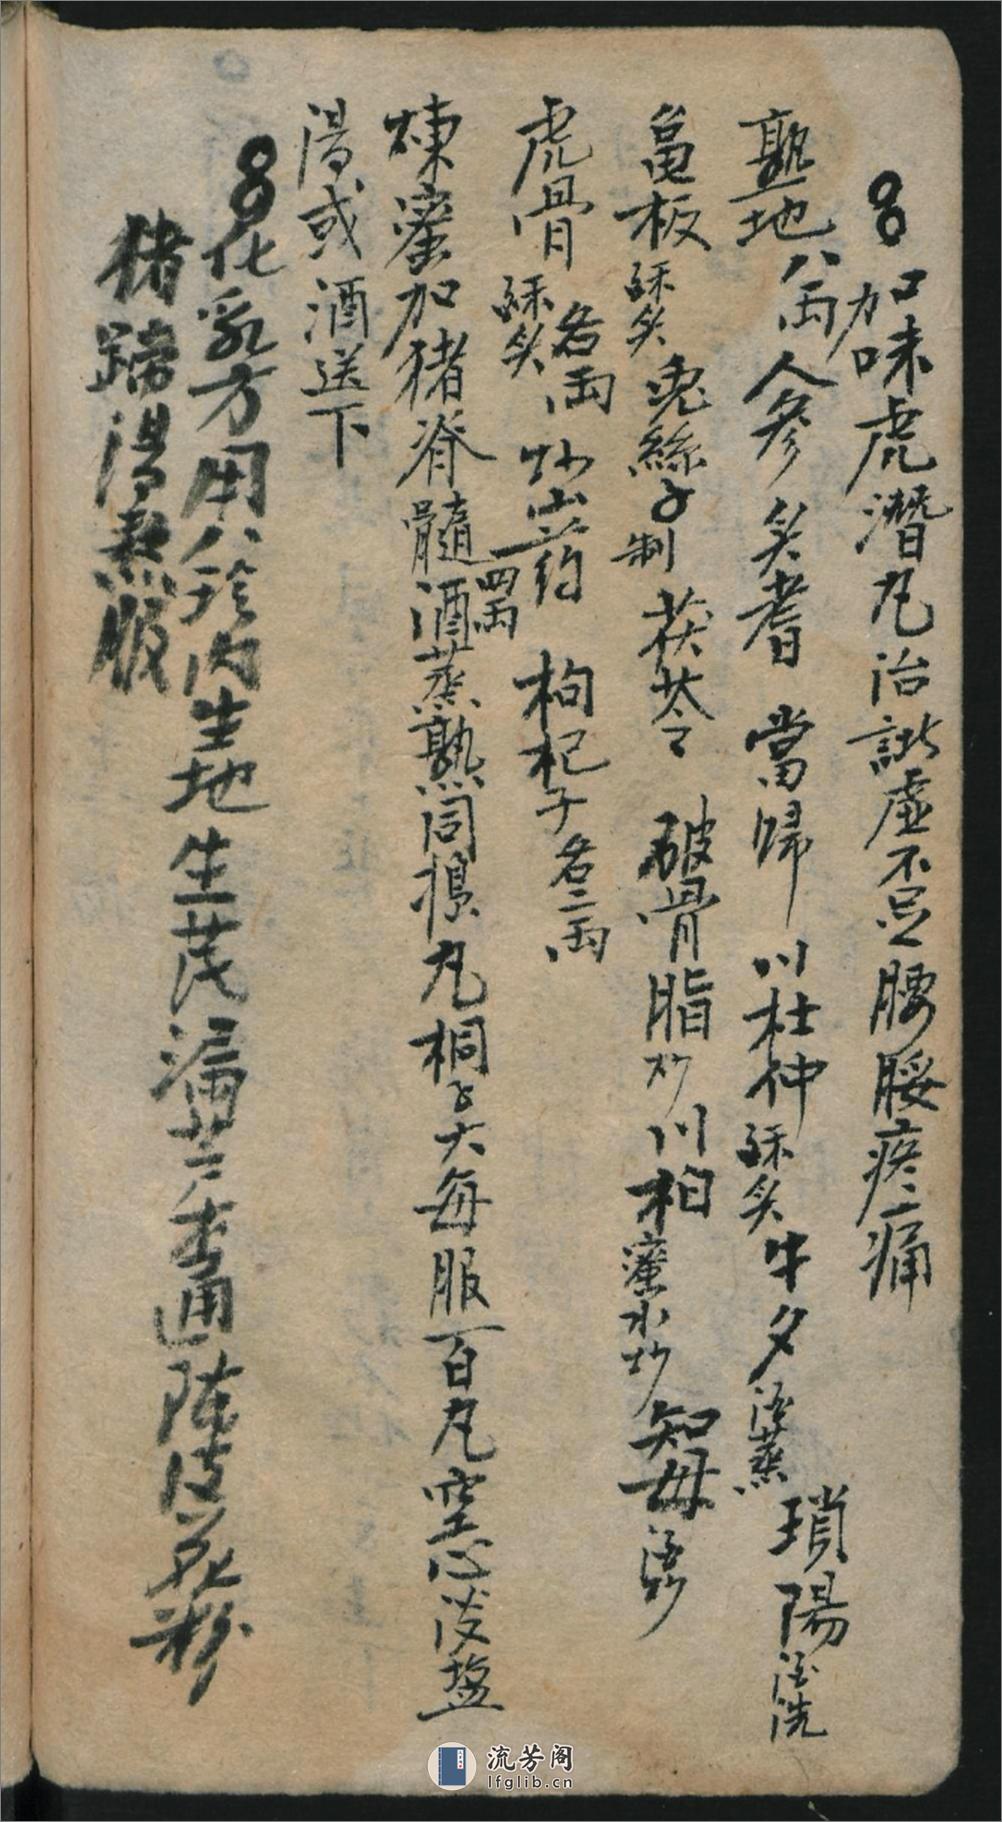 加味虎潛丸治諸虛不足腰腿疼痛
熟地八両人參炙耆當歸川杜仲酥炙牛夕酒蒸瑣陽酒洗
龜板酥炙兎絲子制茯苓破骨脂炒川柏蜜水炒知母酒炒
虎骨酥炙各両炒山药四両枸杞子各二両
煉蜜加猪脊髓酒蒸熟同搗丸桐子大每服百丸空心淡盐
湯或酒送下
化乳方用八珍内生地生茂漏芦木通陈皮花粉
猪蹄湯熬服
流芳阁
lfglib.cn